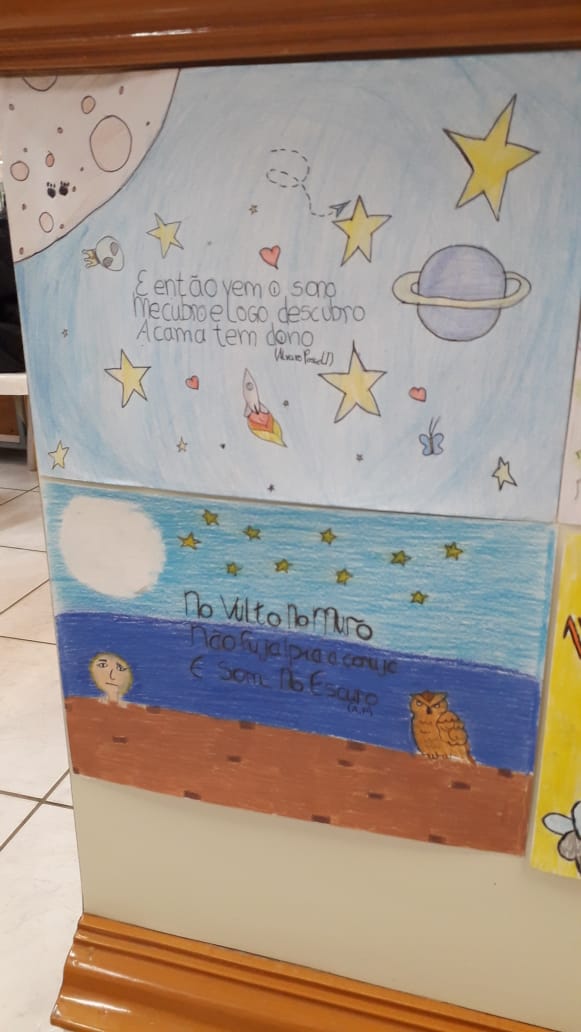 E então vem o sono
Me cubro e Logo descubro
A cama tem dono
No Vulto No Muro
Não fuja! pia a coruja
É Som No Escuro
(A.P)